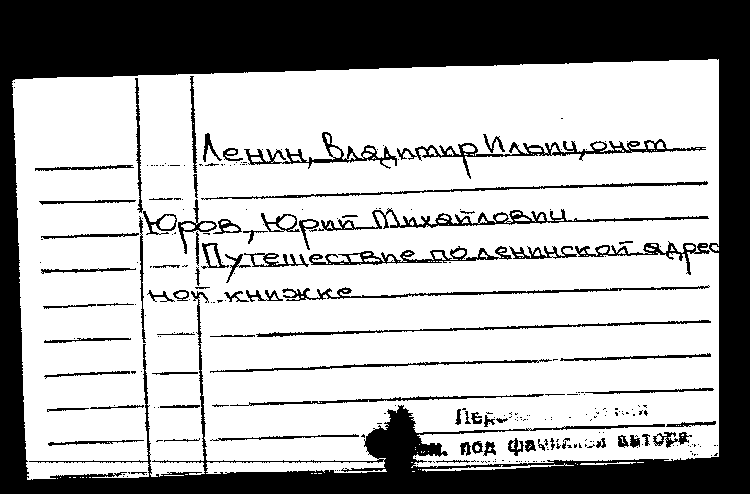 Ленин, Владимир Ильич, о нем
Юров, Юрий Михайлович
Путешествие по ленинской адрес
ной книжке
под фамилией автора